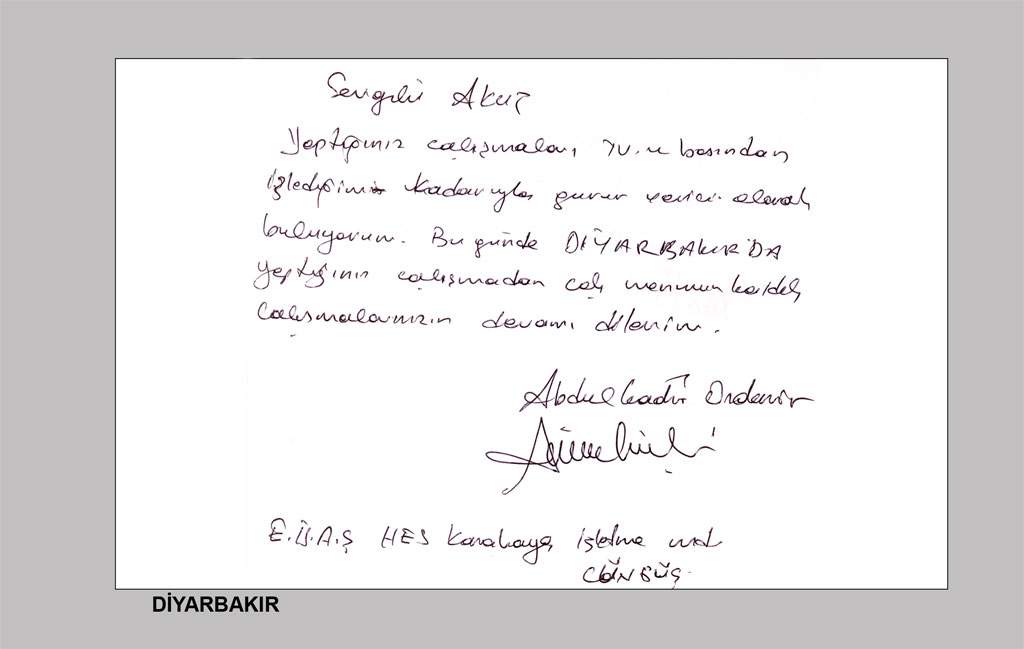 Sevgili AKUT
Yaptığınız çalışmaları TV. ve basından
izlediğimiz kadarıyla gurur verici olarak
buluyorum. Bu günde DİYARBAKIR'DA
yaptığınız çalışmadan çok memnun kaldık
Çalışmalarınızın devamı dilerim.
Abdulkadir Ondemir
E.Ü.A.Ş HES Karakaya işletme md
ÇÜNGÜŞ.
DİYARBAKIR